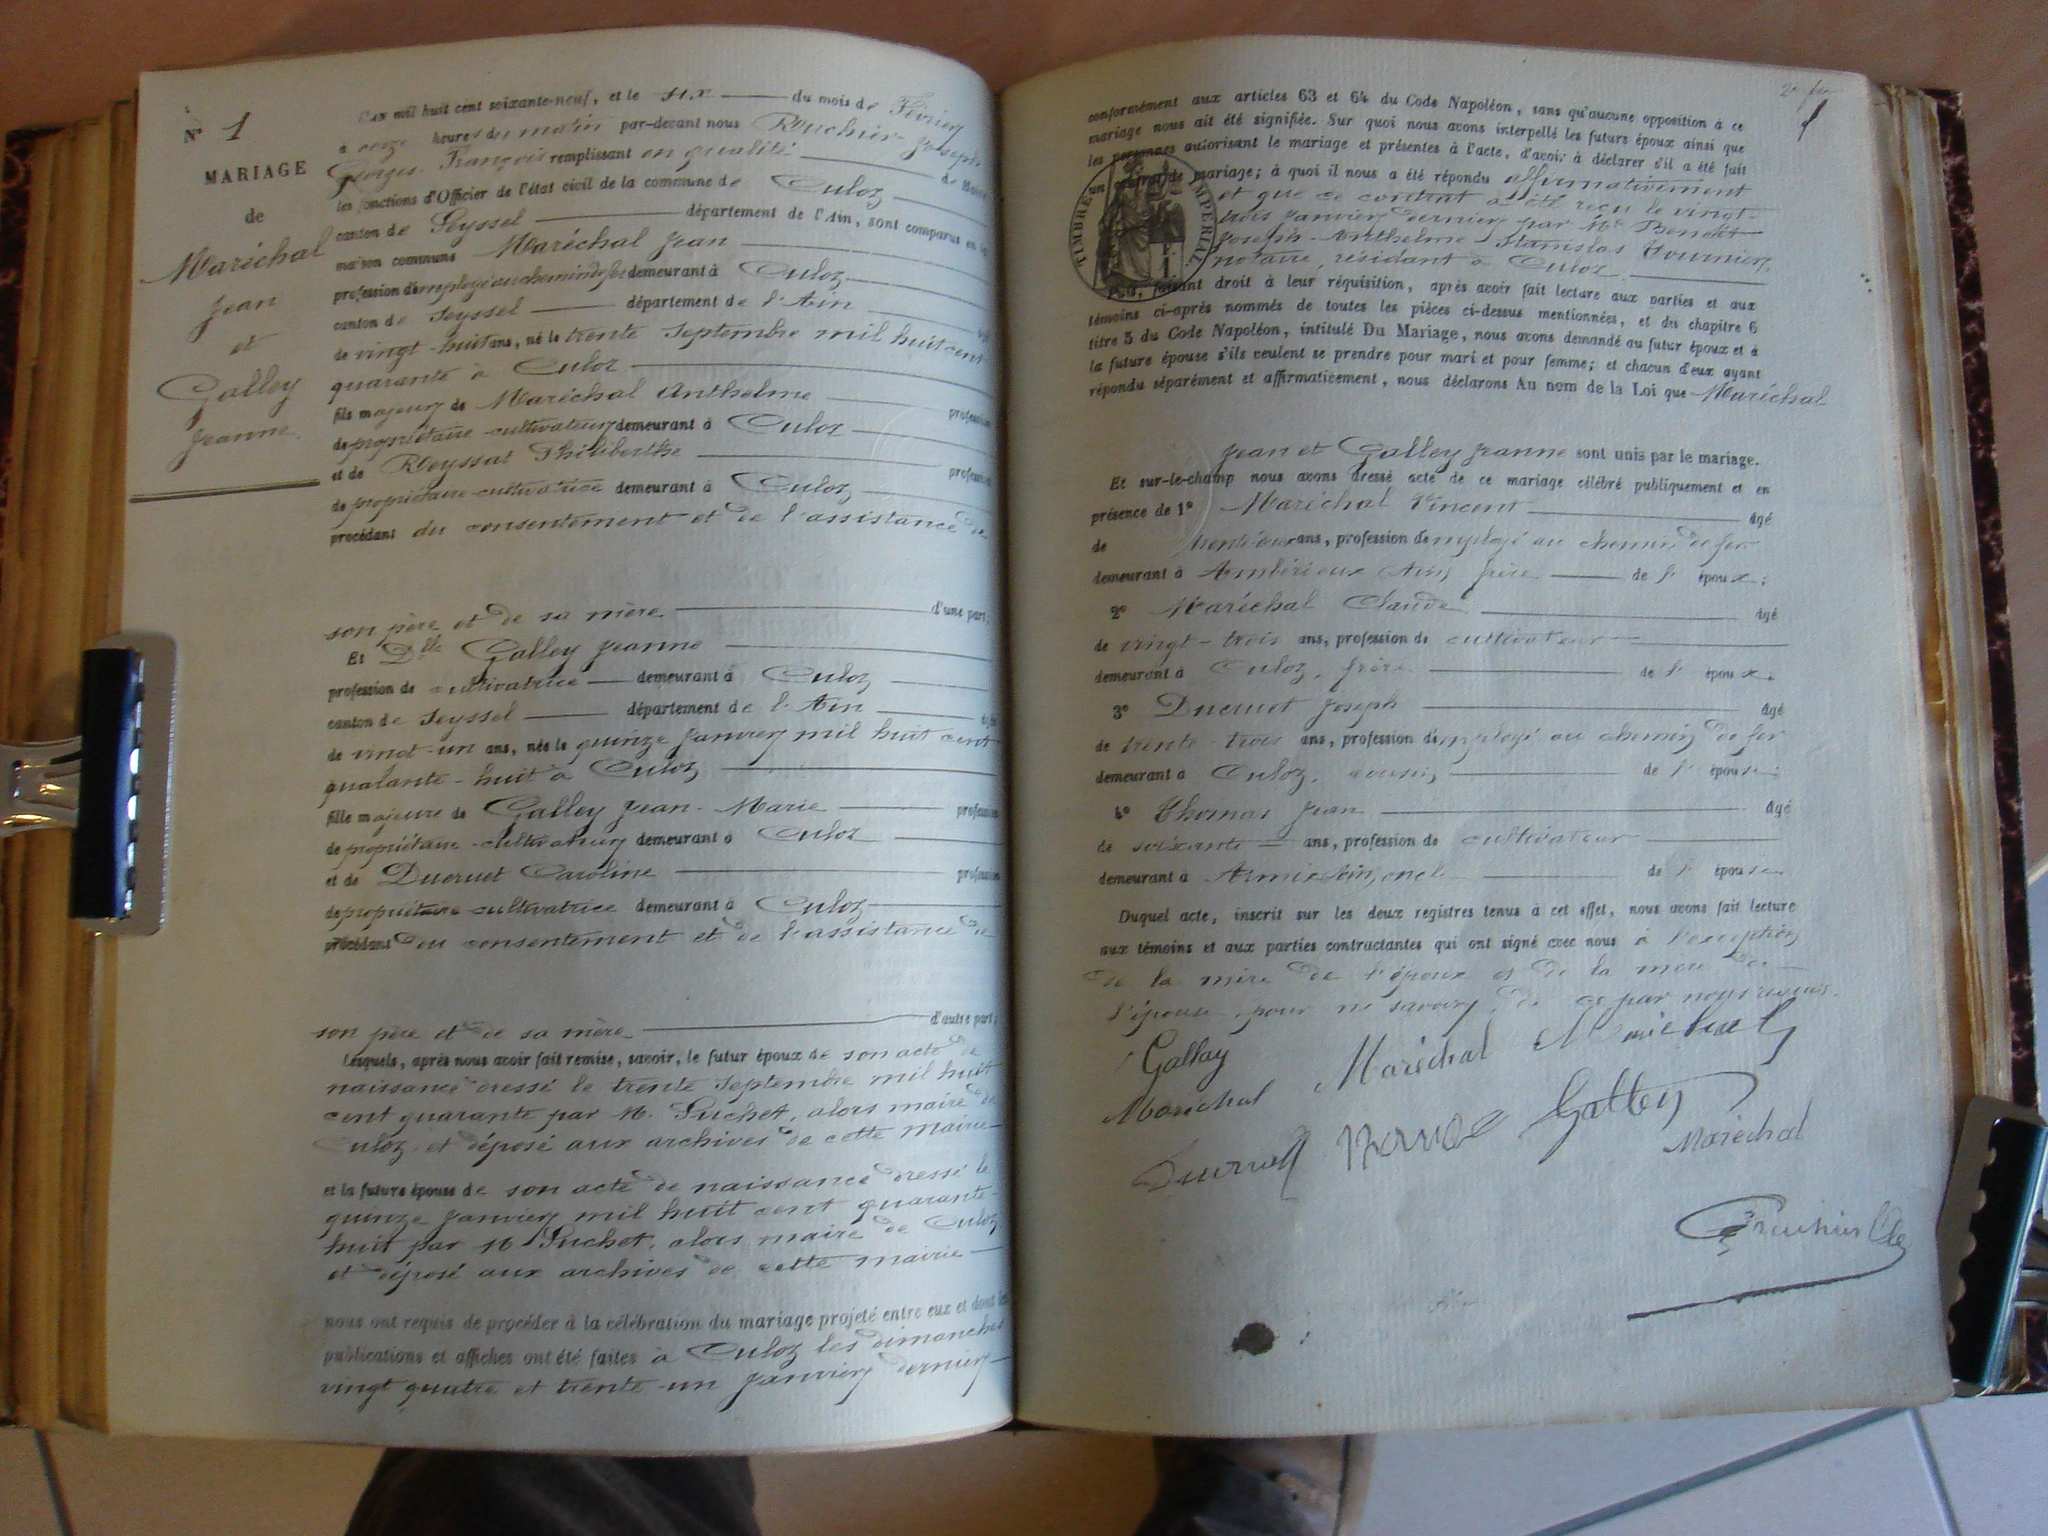 N° 1
MARIAGE
de
Maréchal
Jean
et
Galley
Jeanne
L'an mil huit cent soixante-neuf, et le six du mois de Février
a onze heures du matin par-devant nous Joseph
Georges François remplissant en qualité de Maire
les fonctions d'Officier de l'état civil de la commune de Culoz
canton de Seyssel département de l'Ain, sont comparus en la
maison commune Maréchal Jean
profession d'employé au chemin de fer demeurant à Culoz
canton de Seyssel département de l'Ain âgé
de vingt-huit ans, né le trente Septembre mil huit cent
quarante à Culoz
fils majeur de Maréchal Anthelme profession
de propriétaire-cultivateur demeurant à Culoz
et de Reyssat Philiberthe profession
de propriétaire-cultivatrice demeurant à Culoz
procédant du consentement et de l'assistance de
son père et de sa mère d'une part;
Et Dlle Galley Jeanne
profession de cultivatrice demeurant à Culoz
canton de Seyssel département de l'Ain âgée
de vingt-un ans, née le quinze Janvier mil huit cent
quarante-huit à Culoz
fille majeure de Galley Jean-Marie profession
de propriétaire-cultivateur demeurant à Culoz
et de Ducruet Caroline profession
de propriétaire-cultivatrice demeurant à Culoz
procédant du consentement et de l'assistance de
son père et de sa mère d'autre part;
Lesquels, après nous avoir fait remise, savoir, le futur époux de son acte de
naissance dressé le trente Septembre mil huit
cent quarante par M. Puchet, alors maire de
Culoz et déposé aux archives de cette mairie
et la future épouse de son acte de naissance dressé le
quinze Janvier mil huit cent quarante-
huit par M Puchet, alors maire de Culoz
et déposé aux archives de cette mairie
nous ont requis de procéder à la célébration du mariage projeté entre eux et dont les
publications et affiches ont été faites à Culoz les dimanches
vingt quatre et trente-un Janvier dernier
conformément aux articles 63 et 64 du Code Napoléon, sans qu'aucune opposition à ce
mariage nous ait été signifiée. Sur quoi nous avons interpellé les futurs époux ainsi que
les personnes autorisant le mariage et présentes à l'acte, d'avoir à déclarer s'il a été fait
un contrat de mariage; à quoi il nous a été répondu affirmativement
et que ce contrat a été reçu le vingt-
trois Janvier dernier par Me Benoît
Joseph-Anthelme Stanislas Fournier,
notaire, résidant à Culoz
TIMBRE IMPERIAL
faisant droit à leur réquisition, après avoir fait lecture aux parties et aux
témoins ci-après nommés de toutes les pièces ci-dessus mentionnées, et du chapitre 6
titre 5 du Code Napoléon, intitulé Du Mariage, nous avons demandé au futur époux et à
la future épouse s'ils veulent se prendre pour mari et pour femme; et chacun d'eux ayant
répondu séparément et affirmativement, nous déclarons Au nom de la Loi que Maréchal
Jean et Galley Jeanne sont unis par le mariage.
Et sur-le-champ nous avons dressé acte de ce mariage célébré publiquement et en
présence de 1° Maréchal Vincent âgé
de ans, profession d'employé au chemin de fer
demeurant à Ambérieux Ain, frère de l' époux;
2° Maréchal Claude âgé
de vingt-trois ans, profession de cultivateur
demeurant à Culoz, frère de l' époux.
3° Ducruet Joseph âgé
de trente-trois ans, profession d'employé au chemin de fer
demeurant à Culoz, cousin de l' épouse;
4° Thomas Jean âgé
de soixante ans, profession de cultivateur
demeurant à oncle de l' épouse
Duquel acte, inscrit sur les deux registres tenus à cet effet, nous avons fait lecture
aux témoins et aux parties contractantes qui ont signé avec nous à l'exception
de la mère de l'époux et de la mère de
l'épouse pour ne savoir, de ce par nous requis.
Gallay Maréchal Maréchal
Maréchal Galley
Ducruet Maréchal